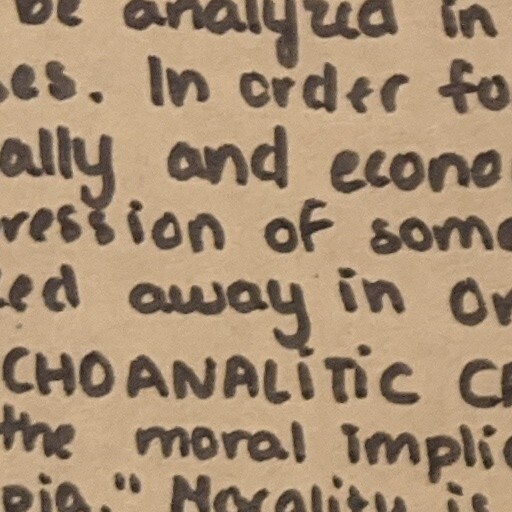 be analyzed in
es. In order fo
ally and econo
ression of some
ed away in Or
CHOANALiTiC CR
the moral implic
pia." Morality is